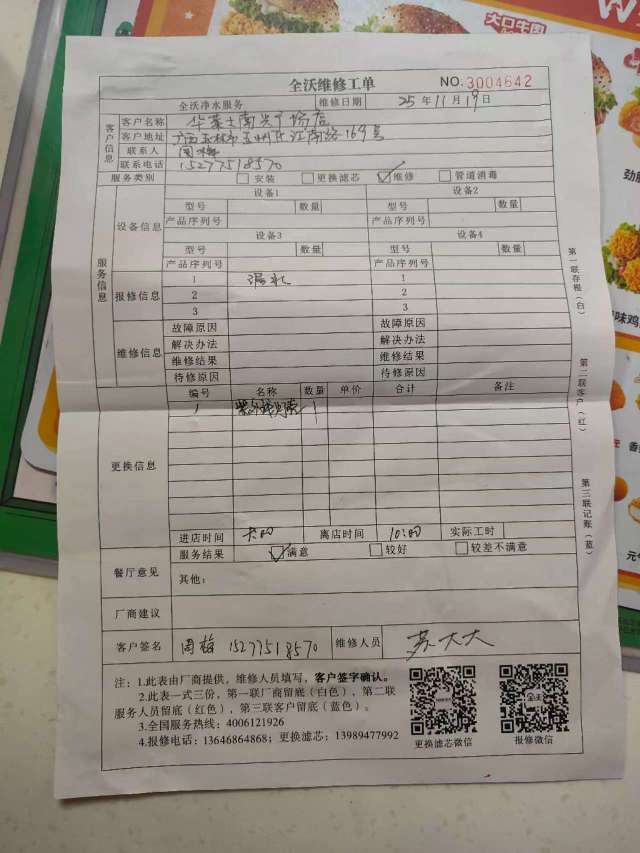 大口牛肉
全沃维修工单
NO.3004642
全沃净水服务 维修日期 25年11月19日
客户信息
客户名称 华莱士南兴广场店
客户地址 广西玉林市玉州区江南路169号
联系人 周梅
联系电话 15277518570
服务类别 安装 更换滤芯 维修 管道消毒
服务信息
设备信息
设备1 设备2
型号 数量 型号 数量
产品序列号 产品序列号
设备3 设备4
型号 数量 型号 数量
产品序列号 产品序列号
报修信息
1 漏水 1
2 2
3 3
维修信息
故障原因 故障原因
解决办法 解决办法
维修结果 维修结果
待修原因 待修原因
更换信息
编号 名称 数量 单价 合计 备注
1 1
进店时间 离店时间 10:00 实际工时
餐厅意见
服务结果 满意 较好 较差不满意
其他:
厂商建议
客户签名 周梅 15277518570 维修人员 苏大大
注:1.此表由厂商提供,维修人员填写,客户签字确认。
2.此表一式三份,第一联厂商留底(白色),第二联
服务人员留底(红色),第三联客户留底(蓝色)。
3.全国服务热线:4006121926
4.报修电话:13646864868;更换滤芯:13989477992
更换滤芯微信
报修微信
第一联存根(白)
第二联客户(红)
第三联记账(蓝)